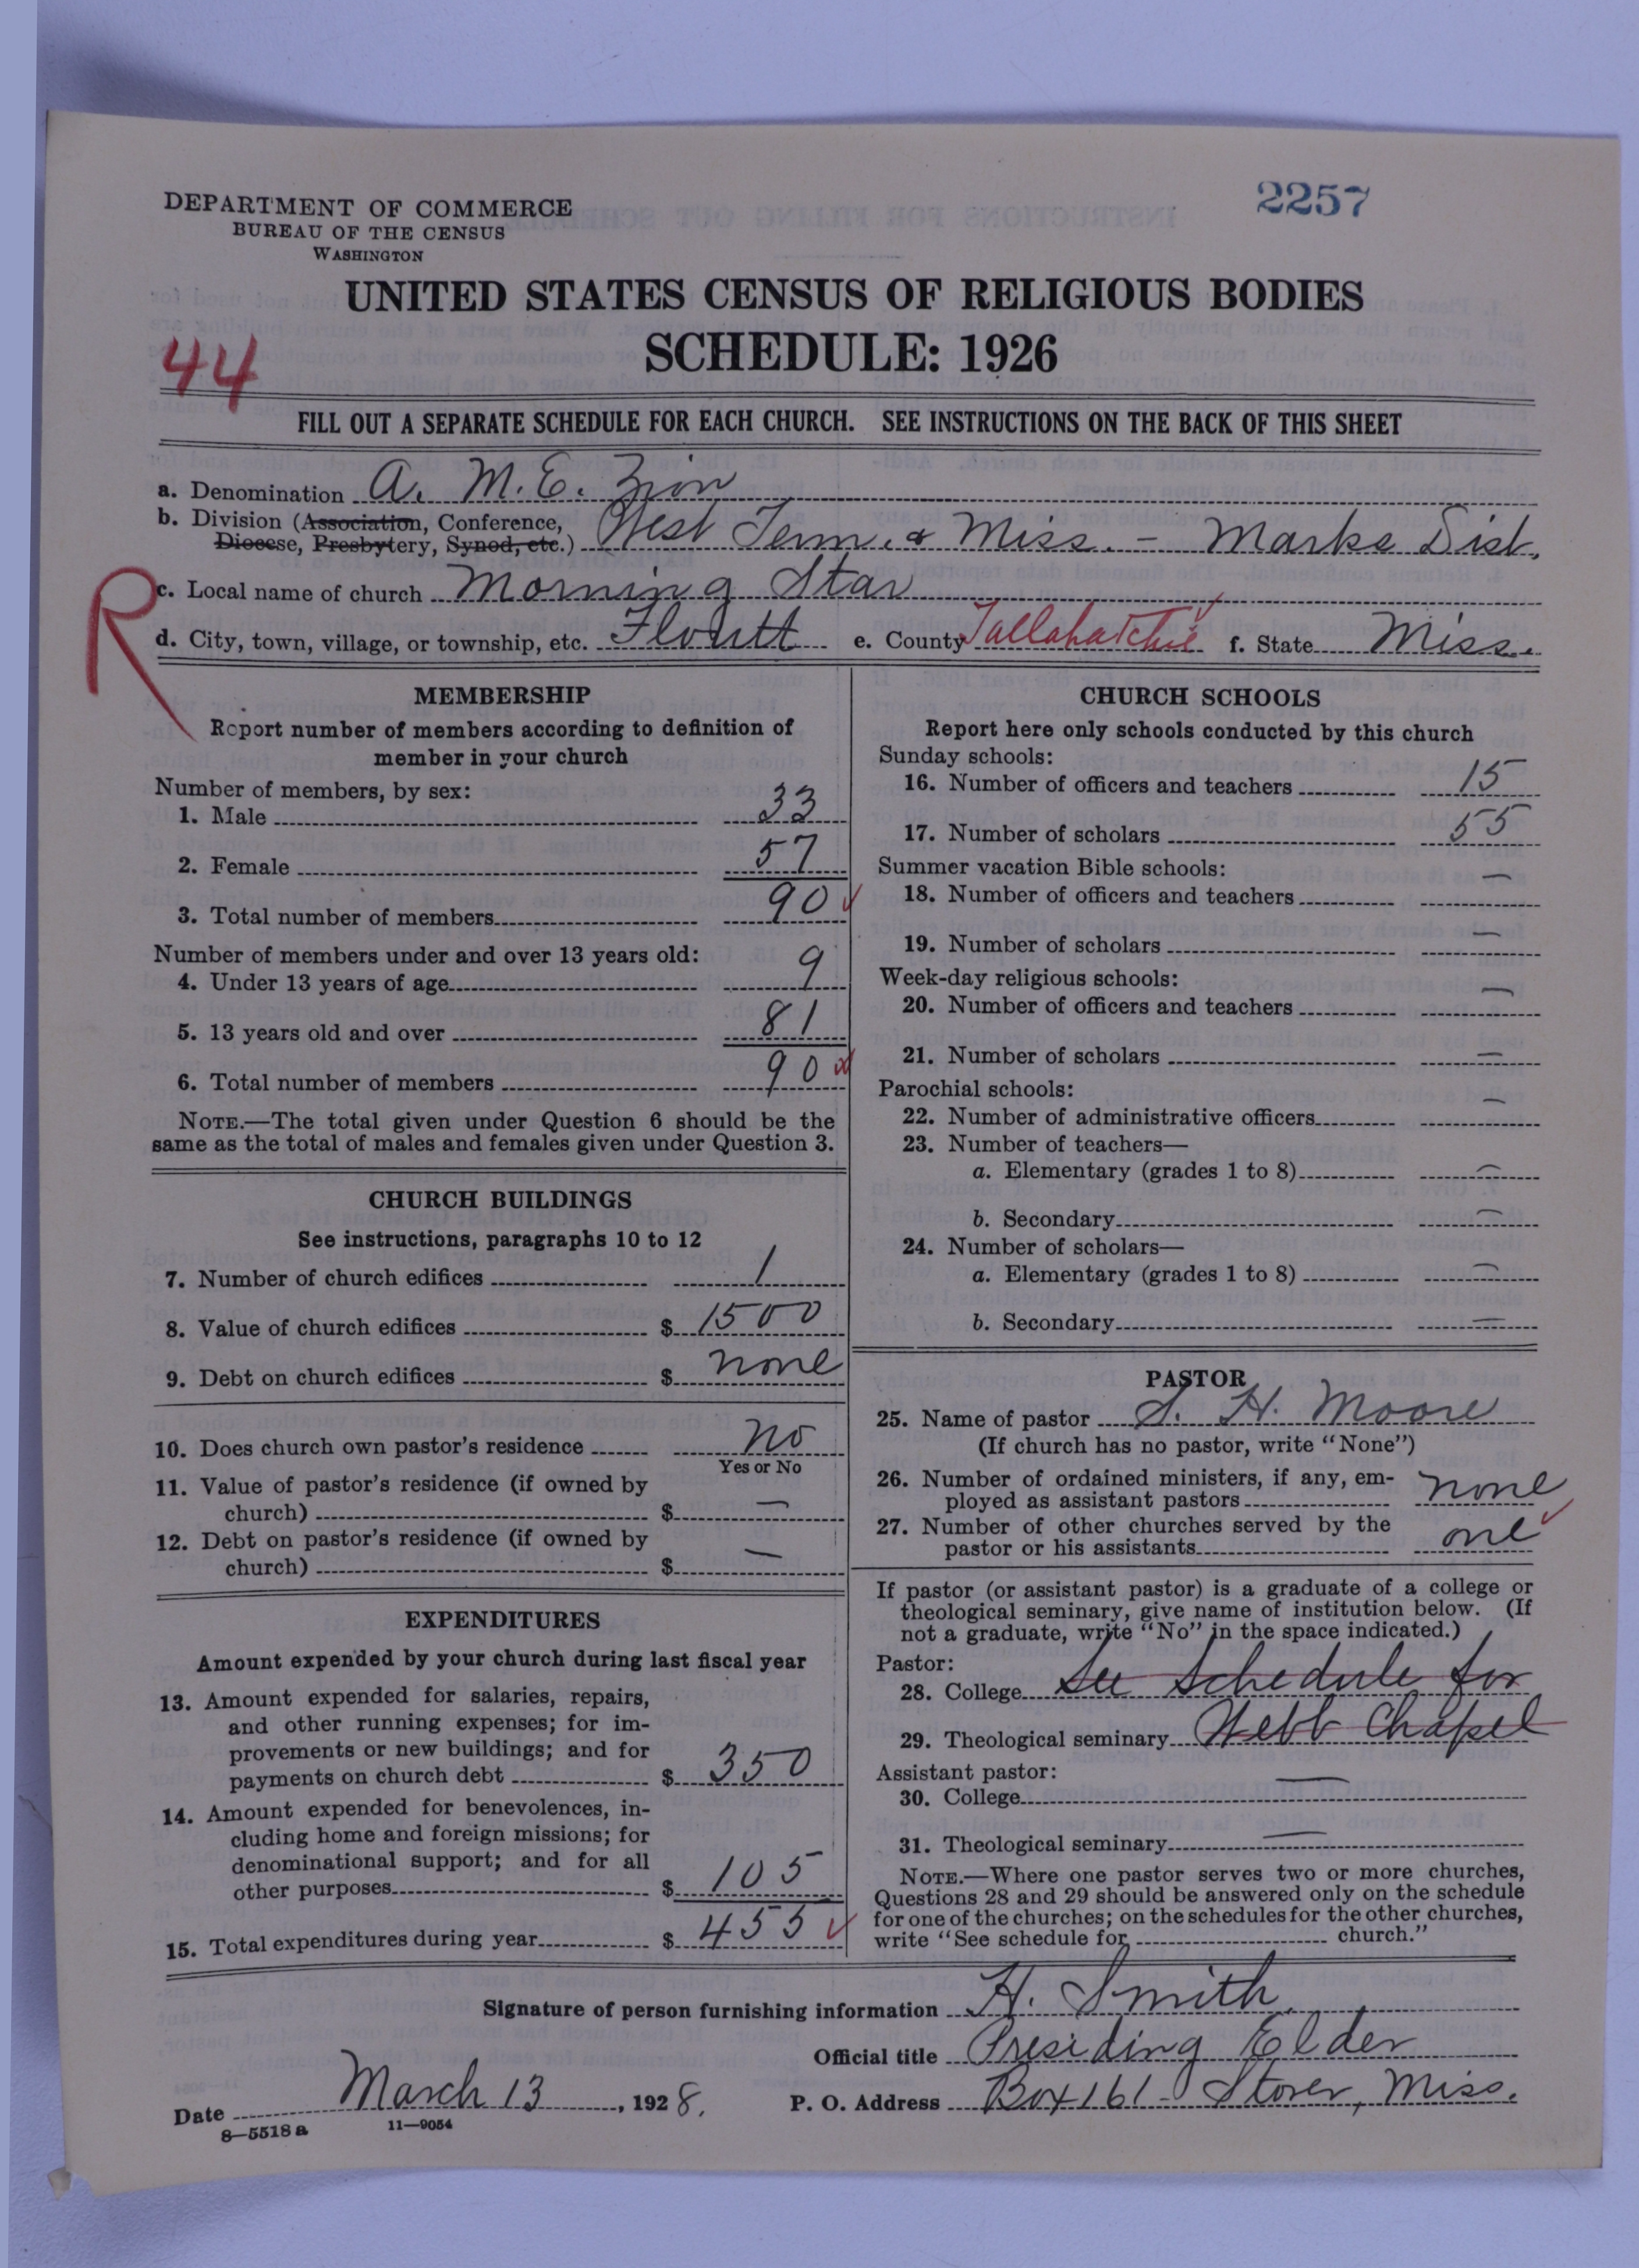 2257
DEPARTMENT OF COMMERCE
BUREAU OF THE CENSUS
WASHINGTON
UNITED STATES CENSUS OF RELIGIOUS BODIES
SCHEDULE: 1926
44
FILL OUT A SEPARATE SCHEDULE FOR EACH CHURCH. SEE INSTRUCTIONS ON THE BACK OF THIS SHEET
a. Denomination A. M. E. Zion
b. Division (Association, Conference,
Diocese, Presbytery, Synod, etc.) West Tenn. & Miss. - Marks Dist.
R
c. Local name of church Morning Star
d. City, town, village, or township, etc. e. County Tallahatchie f. State Miss.
MEMBERSHIP
Report number of members according to definition of
member in your church
Number of members, by sex:
1. Male 33
2. Female 57
3. Total number of members 90 ✓
Number of members under and over 13 years old:
4. Under 13 years of age 9
5. 13 years old and over 81
6. Total number of members 90
NOTE.—The total given under Question 6 should be the
same as the total of males and females given under Question 3.
CHURCH BUILDINGS
See instructions, paragraphs 10 to 12
7. Number of church edifices 1
8. Value of church edifices $ 1500
9. Debt on church edifices $ none
10. Does church own pastor's residence No
Yes or No
11. Value of pastor's residence (if owned by
church) $ —
12. Debt on pastor's residence (if owned by
church) $ —
EXPENDITURES
Amount expended by your church during last fiscal year
13. Amount expended for salaries, repairs,
and other running expenses; for im-
provements or new buildings; and for
payments on church debt $ 350
14. Amount expended for benevolences, in-
cluding home and foreign missions; for
denominational support; and for all
other purposes $ 105
15. Total expenditures during year $ 455 ✓
CHURCH SCHOOLS
Report here only schools conducted by this church
Sunday schools:
16. Number of officers and teachers 15
17. Number of scholars 55
Summer vacation Bible schools:
18. Number of officers and teachers —
19. Number of scholars —
Week-day religious schools:
20. Number of officers and teachers —
21. Number of scholars —
Parochial schools:
22. Number of administrative officers —
23. Number of teachers—
a. Elementary (grades 1 to 8) —
b. Secondary —
24. Number of scholars—
a. Elementary (grades 1 to 8) —
b. Secondary —
PASTOR
25. Name of pastor S. H. Moore
(If church has no pastor, write "None")
26. Number of ordained ministers, if any, em-
ployed as assistant pastors none
27. Number of other churches served by the
pastor or his assistants one ✓
If pastor (or assistant pastor) is a graduate of a college or
theological seminary, give name of institution below. (If
not a graduate, write "No" in the space indicated.)
Pastor:
28. College See Schedule for
29. Theological seminary Webb Chapel
Assistant pastor:
30. College —
31. Theological seminary —
NOTE.—Where one pastor serves two or more churches,
Questions 28 and 29 should be answered only on the schedule
for one of the churches; on the schedules for the other churches,
write "See schedule for church."
Signature of person furnishing information H. Smith
Official title Presiding Elder
Date March 13, 1928. P. O. Address Box 161 - Stover, Miss.
8—5518 a 11—9054